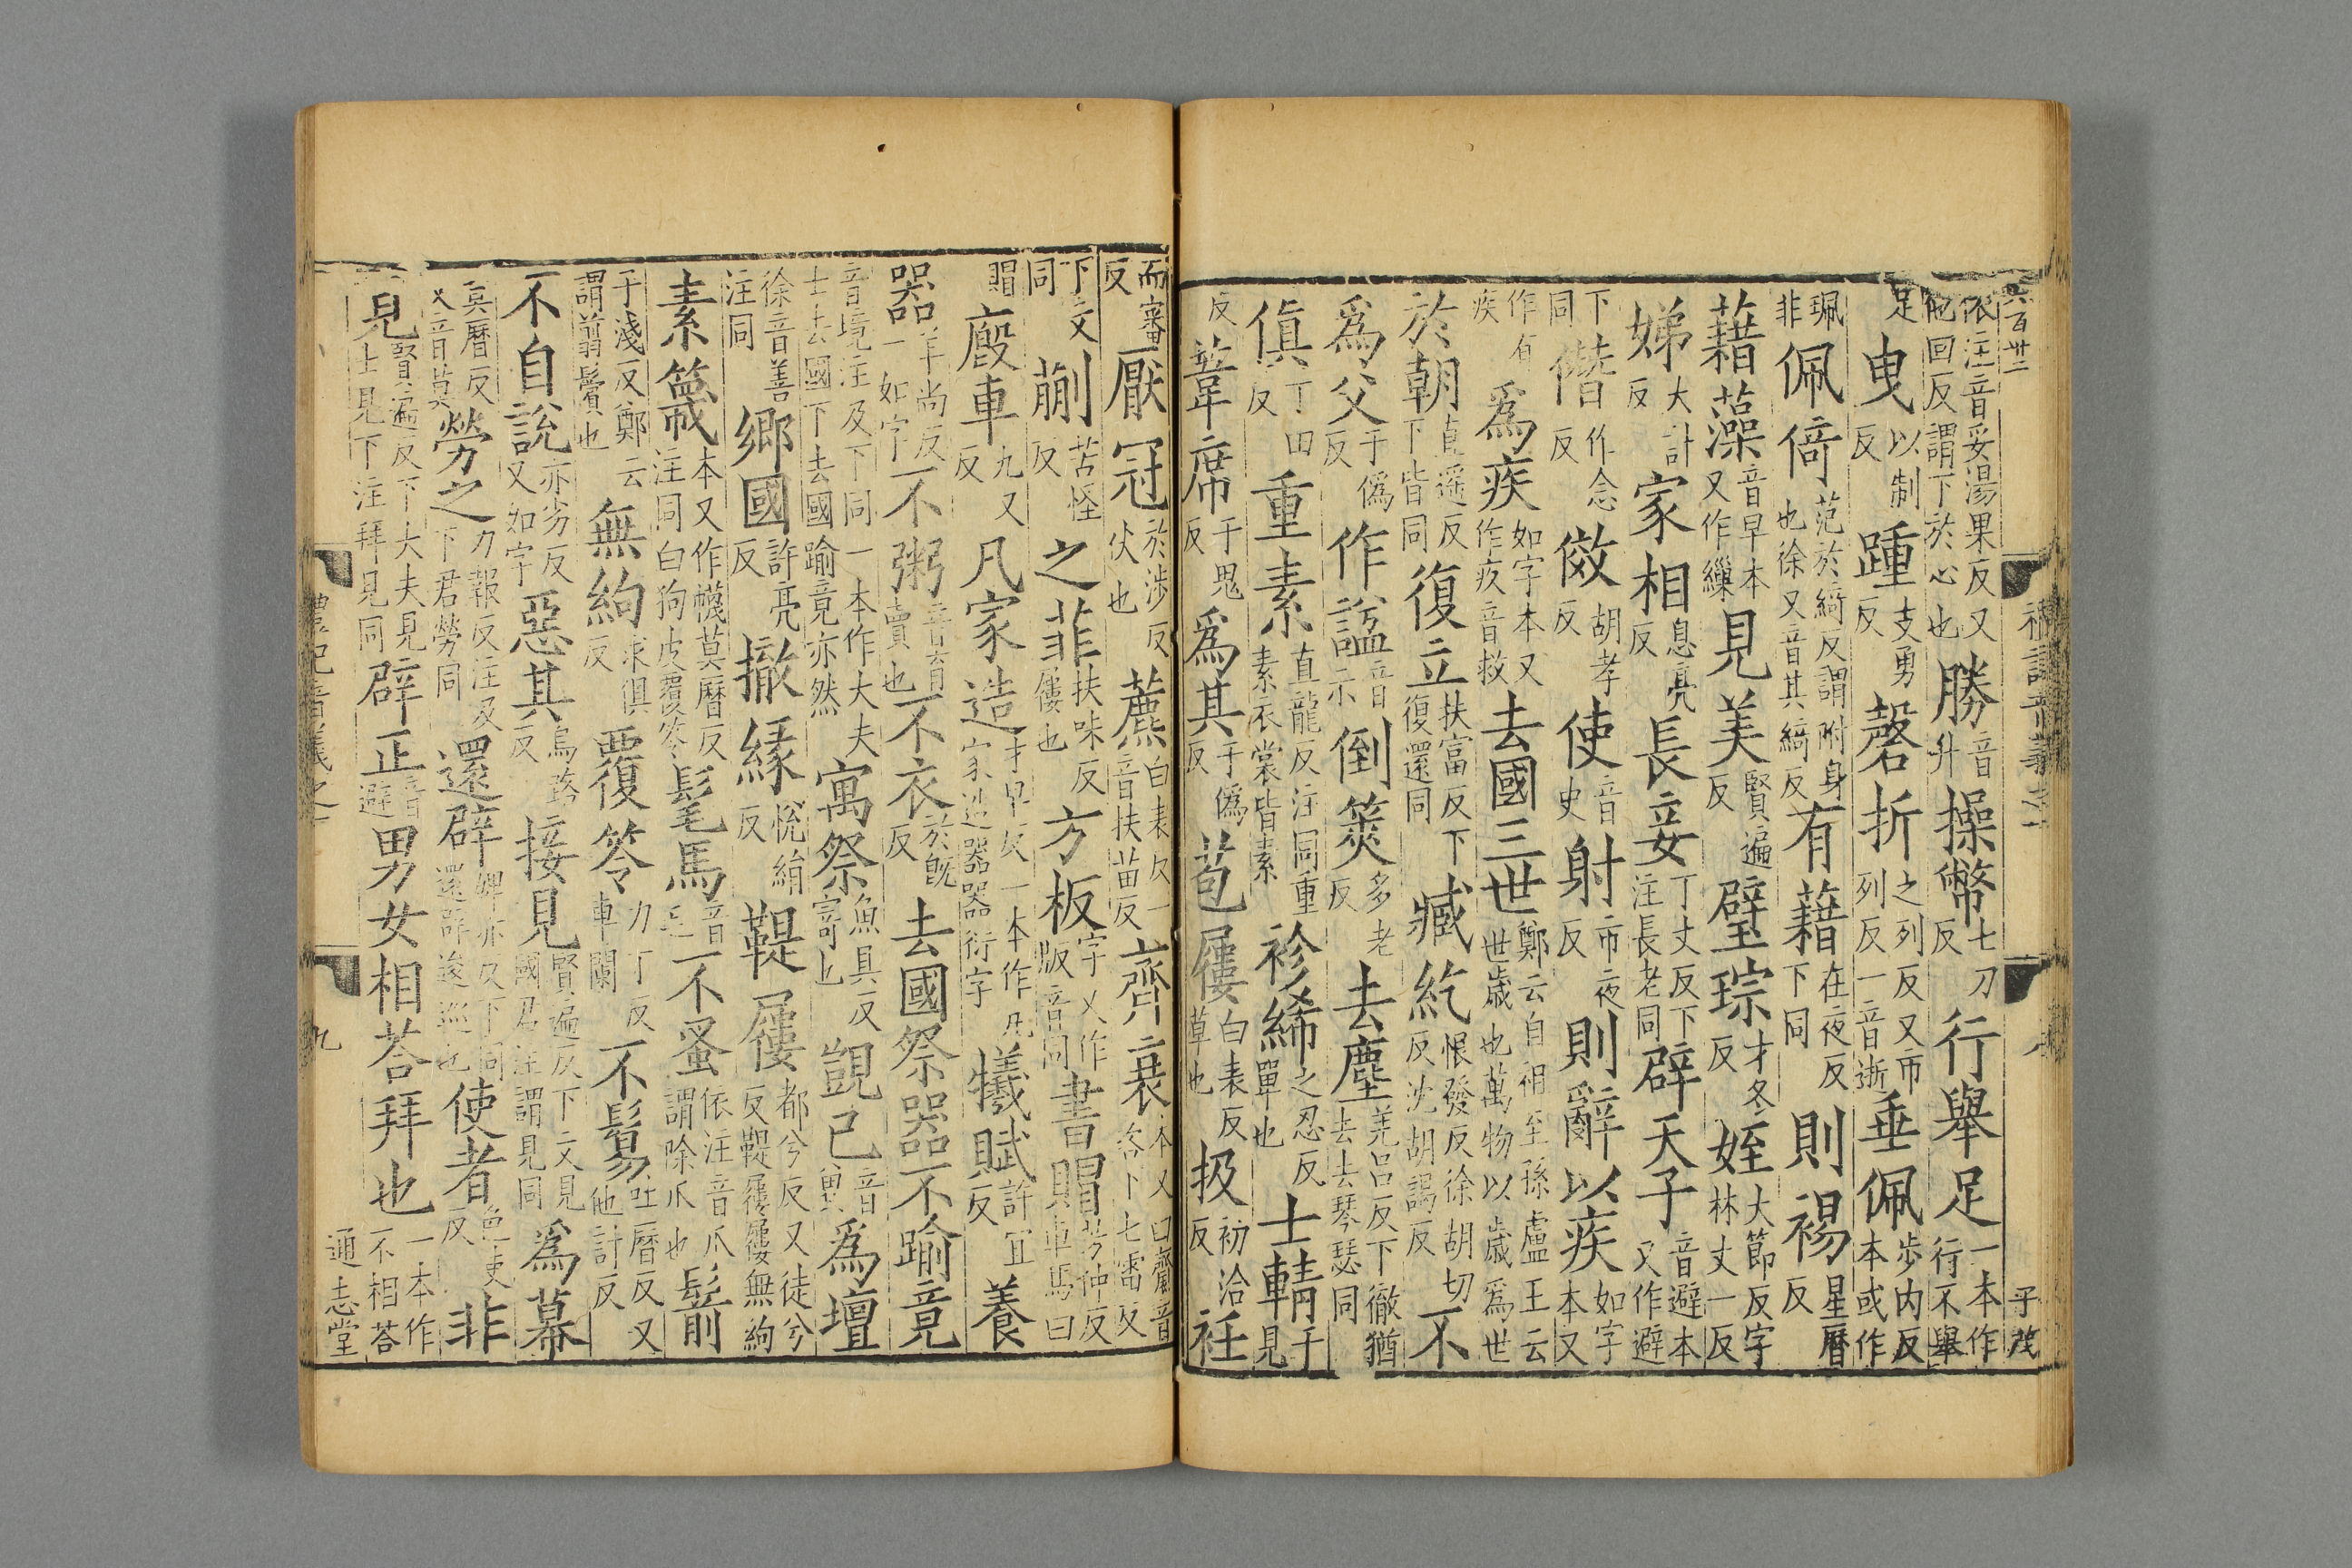 六百卅二 禮記音義之一 八 子茂
依注音妥湯果反又他回反謂下於心也勝音升操幣七刀反行舉足一本作行不舉
足曳以制反踵支勇反磬折之列反又市列反一音逝垂佩步内反本或作
珮非佩倚范於綺反謂附身也徐又音其綺反有藉在夜反下同則裼星曆反
藉藻音早本又作繅見美賢遍反璧琮才冬反姪大節反字林丈一反
娣大計反家相息亮反長妾丁丈反下注長老同辟天子音避本又作避
下同僭作念反俲胡孝反使音史射市夜反則辭以疾如字本又
作有疾爲疾如字本又作疚音救去國三世鄭云自祖至孫盧王云世歲也萬物以歲爲世
於朝直遥反下皆同復立扶富反下復還同臧紇恨發反徐胡切反沈胡謁反不
爲父于僞反作諡音示倒筴多老反去塵羌呂反下徹猶去去琴瑟同
傎丁田反重素直龍反注同重素衣裳皆素袗絺之忍反單也士輤于見
反葦席于鬼反爲其于僞反苞屨白表反草也扱初洽反衽
而審反厭冠於涉反伏也藨白表反一音扶苗反齊衰本又曰齋音咨下七雷反
下文同蒯苦怪反之菲扶味反屨也方板字又作版音同書賵芳仲反車馬曰
賵廄車九又反凡家造才早反一本作凡家造器器衍字犧賦許宜反養
器羊尚反一如字不粥音育賣也不衣於旣反去國祭器不踰竟
音境注及下同一本作大夫士去國下去國踰竟亦然寓祭魚具反寄也覬已音冀爲壇
徐音善注同鄉國許亮反撤緣悅絹反鞮屨都兮反又徒兮反鞮屨屨無絇
素簚本又作幭莫曆反注同白狗皮覆笭髦馬音毛不蚤依注音爪謂除爪也鬋
子淺反鄭云謂翦鬢也無絇求俱反覆笭力丁反車闌不鬄吐曆反又他計反
不自說亦劣反又如字惡其烏路反接見賢遍反下文見國君注謂見同爲幕
莫曆反又音莫勞之力報反注及下君勞同還辟婢亦反下同還辟逡巡也使者色吏反非
見賢遍反下大夫見士見下注拜見同辟正音避男女相荅拜也一本作不相荅
禮記音義之一 九 通志堂